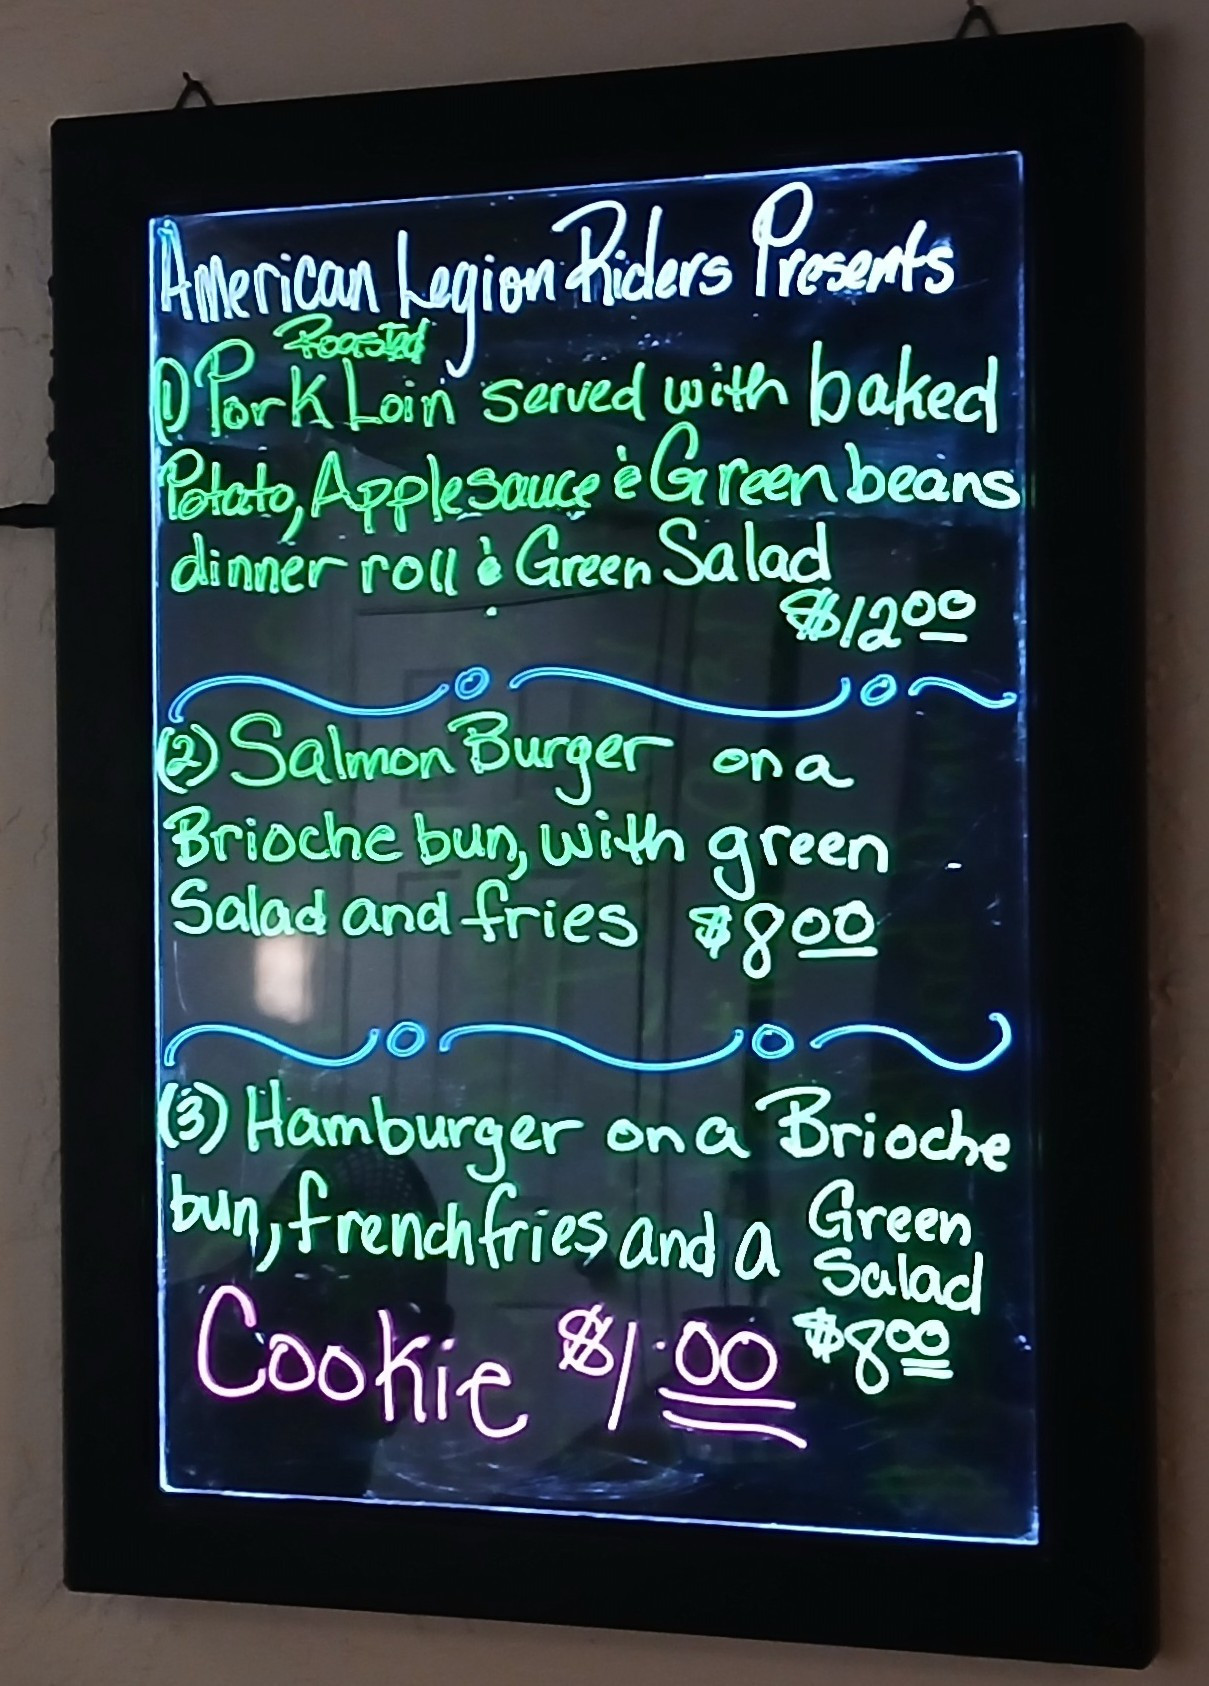 American Legion Riders Presents
Roasted
(1) Pork Loin served with baked
Potato, Applesauce & Green beans
dinner roll & Green Salad
$12.00
(2) Salmon Burger on a
Brioche bun, with green
Salad and fries $8.00
(3) Hamburger on a Brioche
bun, french fries and a Green
Salad
$8.00
Cookie $1.00